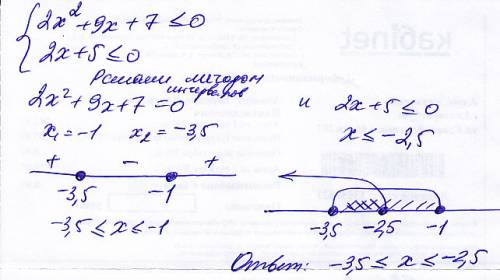 { 2x² + 9x + 7 ≤ 0
2x + 5 ≤ 0
Решаем методом интервалов
2x² + 9x + 7 = 0 и 2x + 5 ≤ 0
x₁ = -1 x₂ = -3,5 x ≤ -2,5
+ - +
-3,5 -1
-3,5 ≤ x ≤ -1
-3,5 -2,5 -1
Ответ: -3,5 ≤ x ≤ -2,5